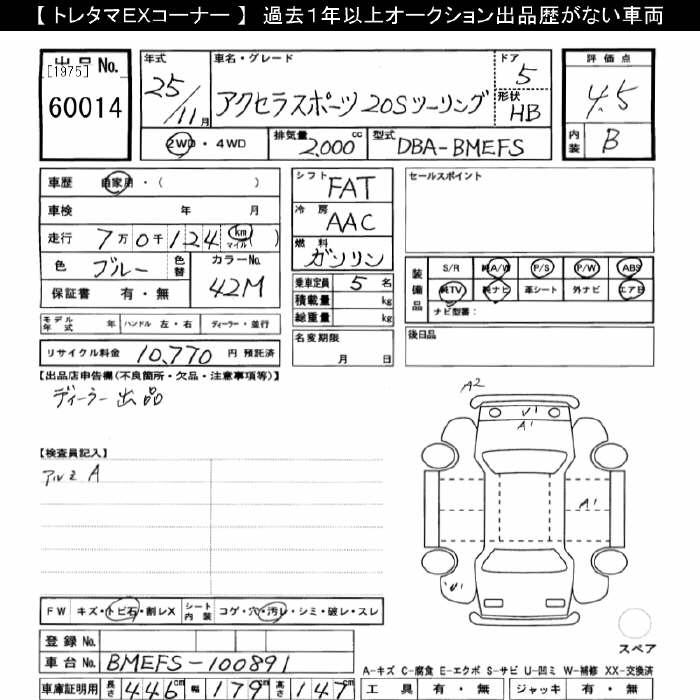 【 トレタマＥＸコーナー 】 過去１年以上オークション出品歴がない車両
出品 No.
[1975]
60014
年式
25/11月
車名・グレード
アクセラスポーツ 20Sツーリング
ドア
5
形状
HB
評価点
4.5
内装
B
2WD・4WD
排気量
2,000 cc
型式
DBA-BMEFS
車歴 自家用・( )
車検 年 月
走行 7万0千124 km マイル ( )
色 ブルー 色替
カラーNo.
42M
保証書 有・無
シフト
FAT
冷房
AAC
燃料
ガソリン
乗車定員 5 名
積載量 kg
総重量 kg
名変期限
月 日
セールスポイント
装備品
S/R 純A/W P/S P/W ABS
純TV 純ナビ 革シート 外ナビ エアB
ナビ型番：
後日品
モデル年式 年 ハンドル 左・右 ディーラー・並行
リサイクル料金 10,770 円 預託済
【出品店申告欄(不良箇所・欠品・注意事項等)】
ディーラー出品
【検査員記入】
アルミ A
A2
V1
A1
A1
V1
スペア
FW キズ・トビ石・割レX シート内装 コゲ・穴・汚レ・シミ・破レ・スレ
登録 No.
車台 No. BMEFS-100891
車庫証明用 長さ 446cm 幅 179cm 高さ 147cm
A-キズ C-腐食 E-エクボ S-サビ U-凹ミ W-補修 XX-交換済
工具 有・無 ジャッキ 有・無